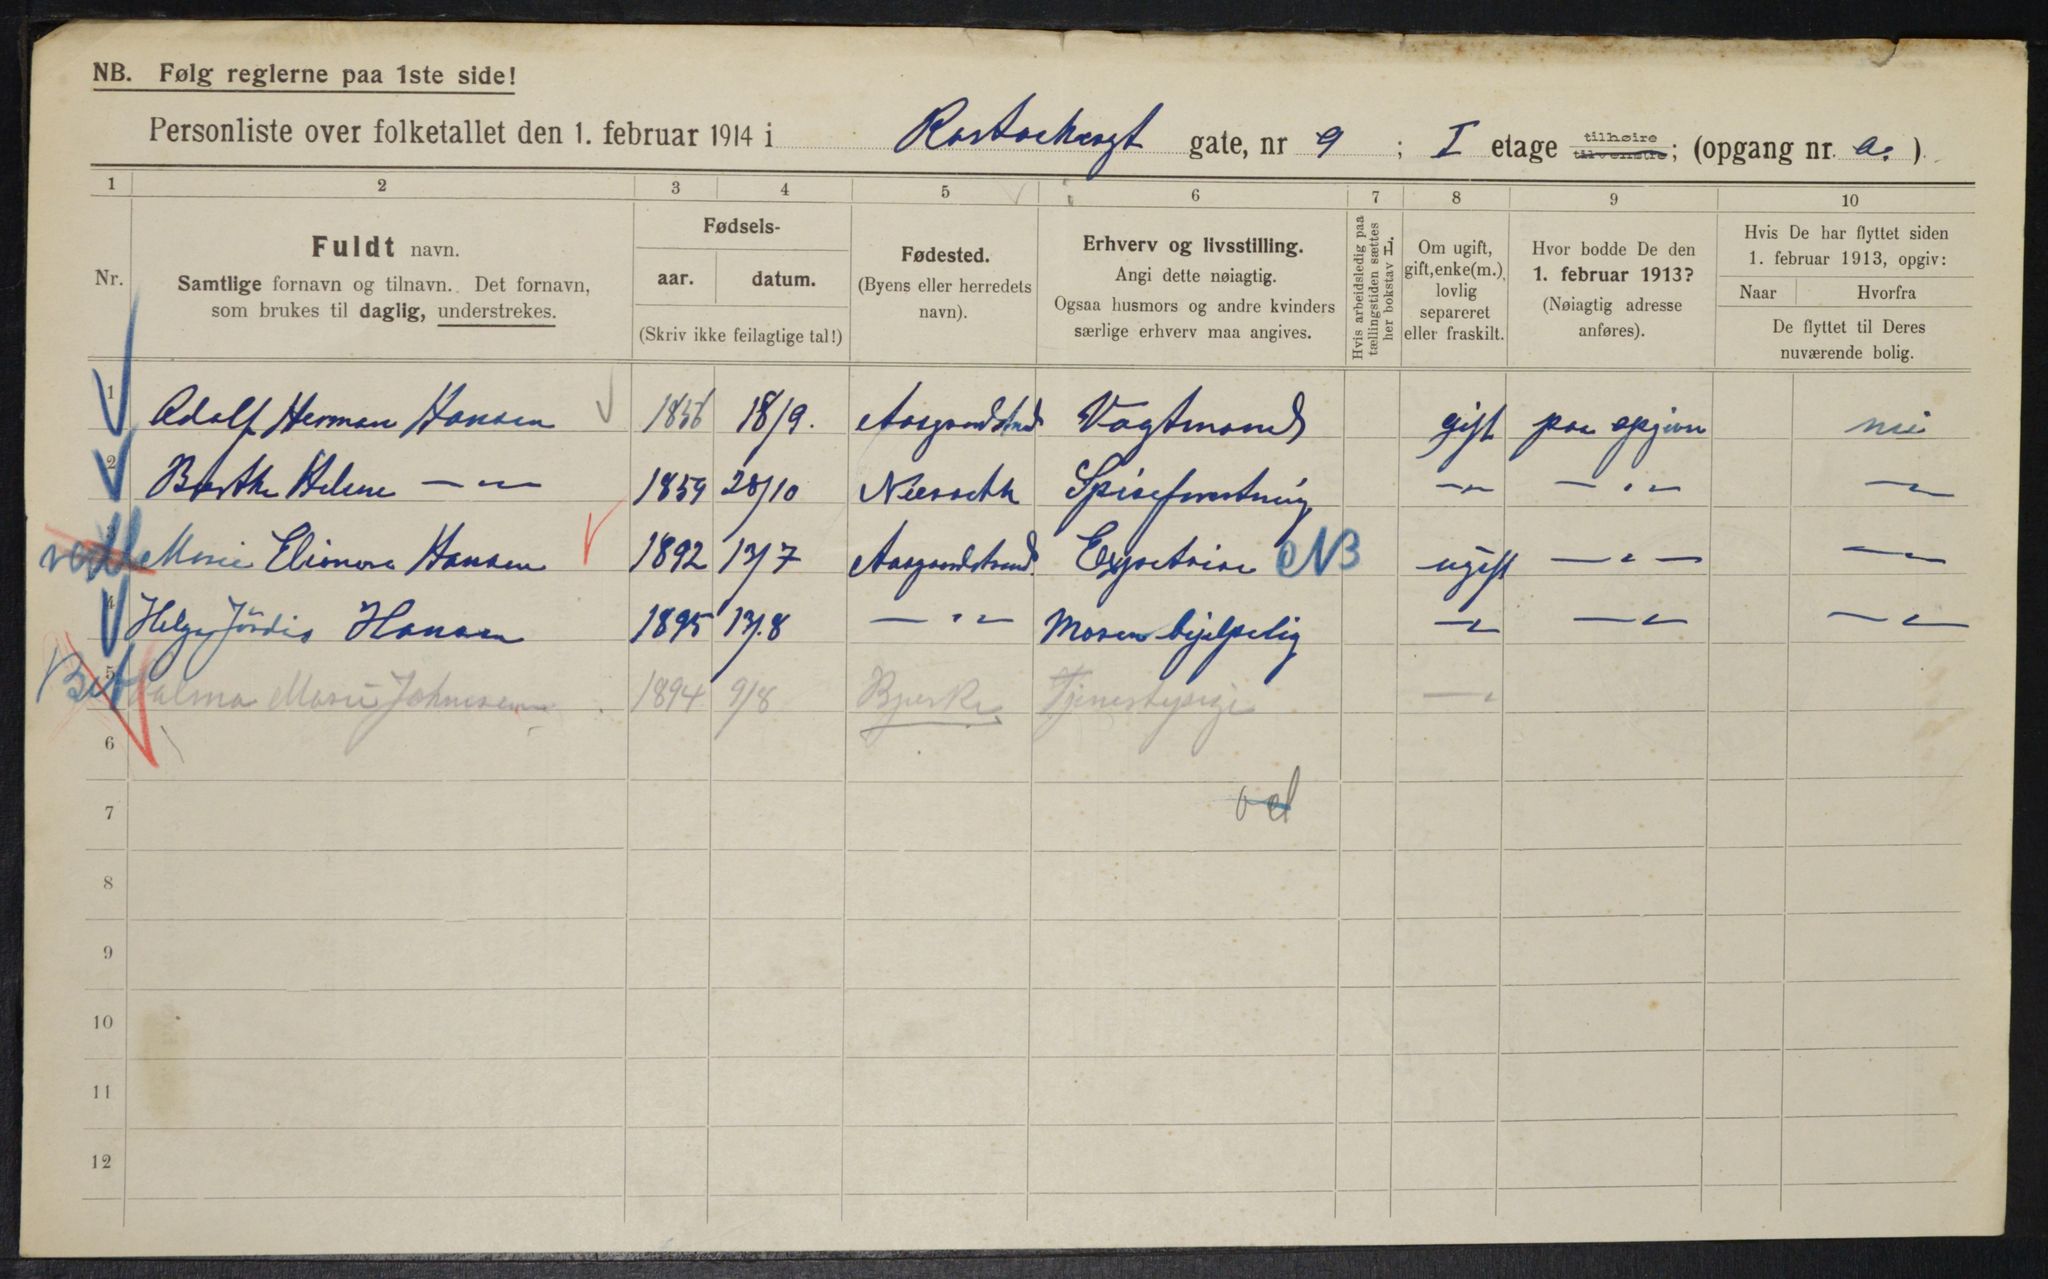 NB. Følg reglerne paa 1ste side!
Personliste over folketallet den 1. februar 1914 i Rostockergt gate, nr 9 ; I etage tilhøire tilvenstre; (opgang nr. a. ).
1 2 3 4 5 6 7 8 9 10
Nr.
Fuldt navn.
Samtlige fornavn og tilnavn. Det fornavn,
som brukes til daglig, understrekes.
Fødsels-
aar. datum.
(Skriv ikke feilagtige tal!)
Fødested.
(Byens eller herredets
navn).
Erhverv og livsstilling.
Angi dette nøiagtig.
Ogsaa husmors og andre kvinders
særlige erhverv maa angives.
Hvis arbeidsledig paa
tællingstiden sættes
her bokstav L.
Om ugift,
gift, enke(m.),
lovlig
separeret
eller fraskilt.
Hvor bodde De den
1. februar 1913?
(Nøiagtig adresse
anføres).
Hvis De har flyttet siden
1. februar 1913, opgiv:
Naar Hvorfra
De flyttet til Deres
nuværende bolig.
1 Adolf Herman Hansen 1856 18/9. Aasgaardstrand Vagtmand gift paa opgivne
2 Berthe Helene — " — 1859 28/10 Spiseforretning — " — — " — — " —
3 Marie Elionora Hansen 1892 13/7 Aasgaardstrand. NB ugift — " — — " —
4 Helga Jördis Hansen 1895 13/8 — " — Moren hjelpelig — " — — " — — " —
5 Marie Johnsen 1894 9/8 Bjerke Tjenestepige — " —
6
7
8
9
10
11
12